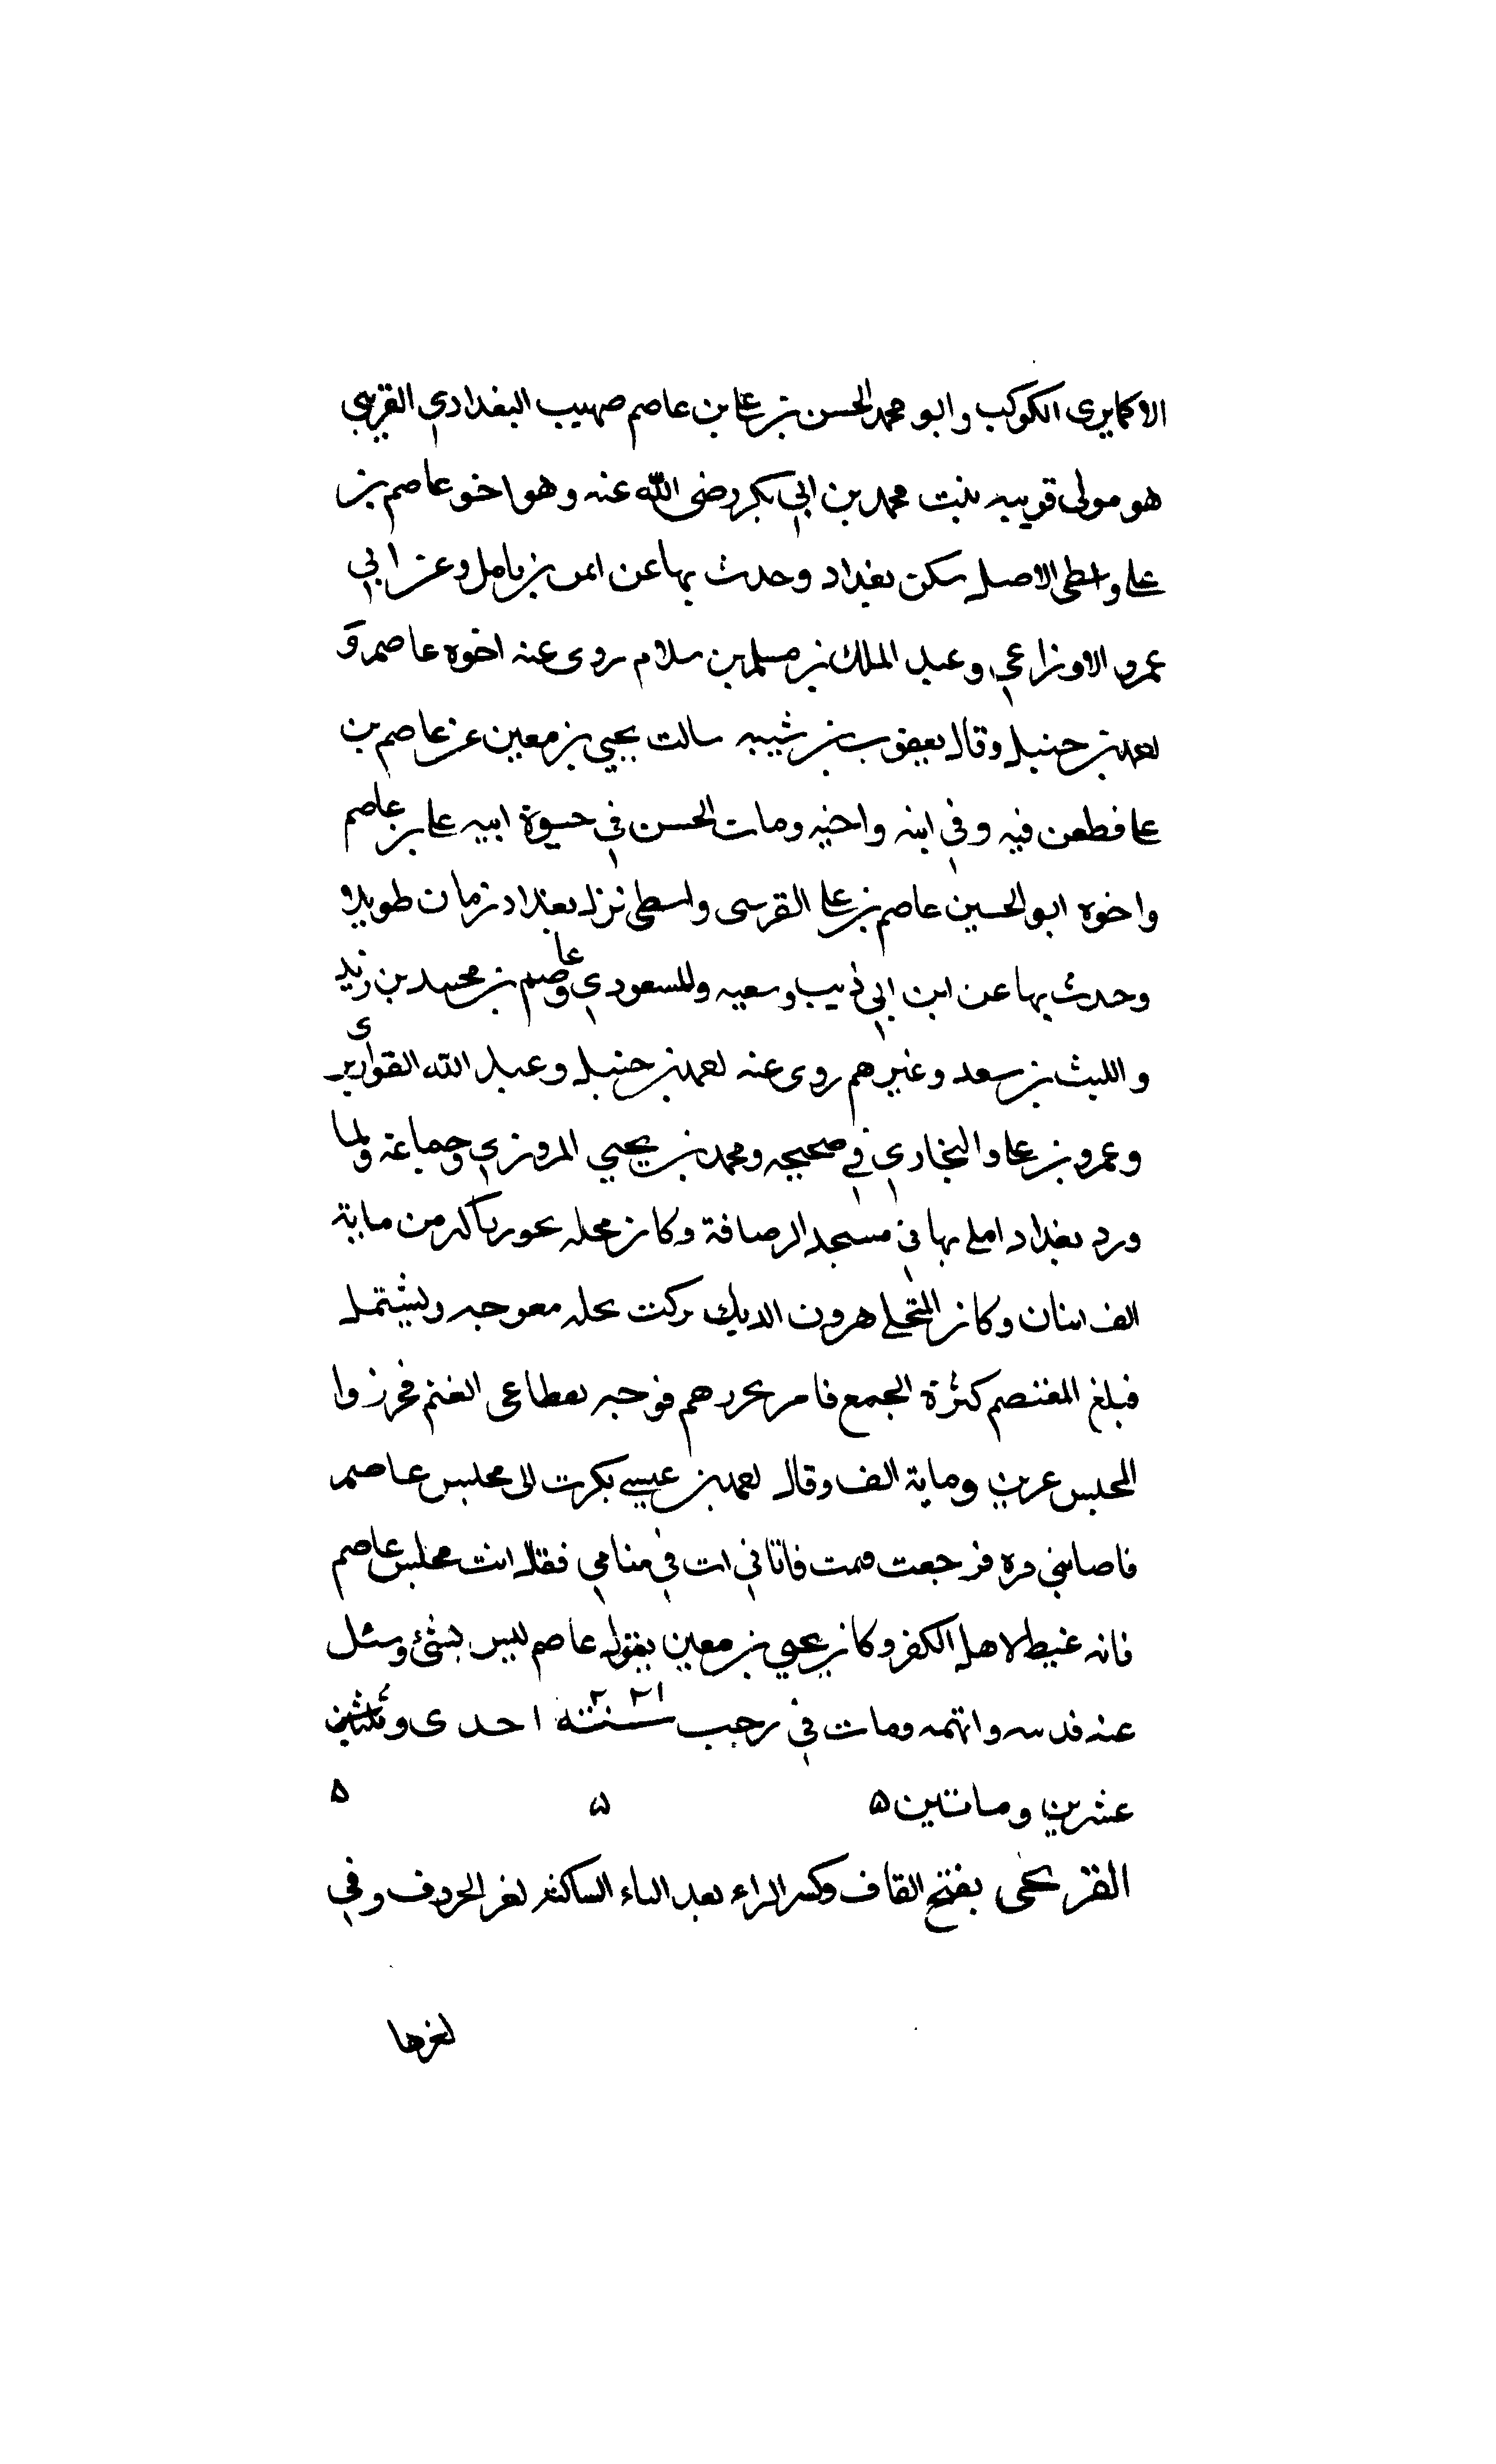 الاكمايرى الكوكب وابو محمد الحسن بن على بن عاصم صهيب البغدادي القريبي
هو مولى قريبه بنت محمد بن ابي بكر رضى الله عنه وهو اخو عاصم بن
على واسطى الاصل سكن بغداد وحدث بها عن ايمن بن نابل وعن ابي
عمرو الاوزاعي وعبد الملك بن مسلم بن سلام روى عنه اخوه عاصم و
احمد بن حنبل وقال يعقوب بن شيبه سالت يحيي بن معين عن عاصم بن
على فطعن فيه وفي ابنه واخيه ومات الحسن في حيوة ابيه على بن عاصم
واخوه ابو الحسين عاصم بن على القرسى واسطى نزل بغداد زمان طويلا
وحدث بها عن ابن ابي ذيب وسعيه والمسعودي وعاصم بن محمد بن زيد
والليث بن سعد وغيرهم روى عنه احمد بن حنبل وعبد الله القواريرى
وعمرو بن على والبخاري في صحيحه ومحمد بن يحيي المروزي وجماعة ولما
ورد بغداد املى بها في مسجد الرصافة وكان مجلسه يحور باكثر من ماية
الف انسان وكان المستملى هرون الديك يركب نخله معوجه ويستمل
فبلغ المغتصم كثرة الجمع فامر بحررهم فوجه بقطاعى الغنم فحرزوا
المجلس عرين وماية الف وقال احمد بن عيسى بكرت الى مجلس عاصم
فاصابني مره فرجعت فنمت فاتاني ات في منامي فقال انت مجلس عاصم
فانه غيط لاهل الكفر وكان يحيي بن معين يقول عاصم ليس بشئ وسئل
عنه فدسه واتهمه ومات في رجب سنة ٢٢١ احدى و
عشرين وماتين ٥ ٥ ٥
القريحى بفتح القاف وكسر الراء بعد الياء الساكنه اخر الحروف وفي
اخرها